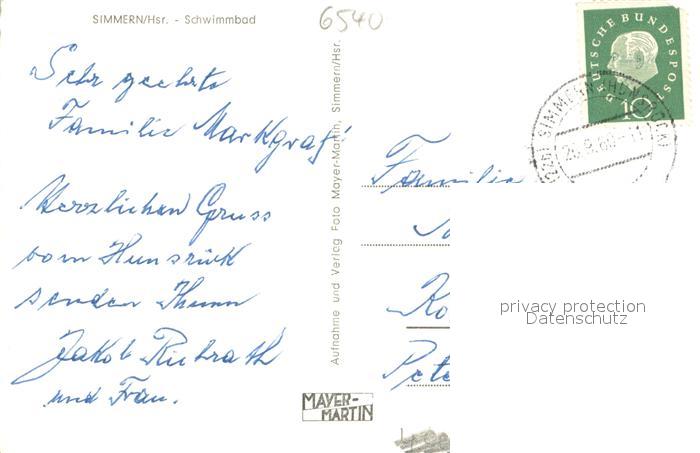 SIMMERN/Hsr. - Schwimmbad
6540
Sehr geehrte
Familie Markgraf!
Herzlichen Gruss
vom Hunsrück
senden Ihnen
Jakob
und Frau.
Aufnahme und Verlag Foto Mayer-Martin, Simmern/Hsr.
MAYER-
MARTIN
DEUTSCHE BUNDESPOST
10
SIMMERN (HUNSRÜCK)
Familie
privacy protection
Datenschutz